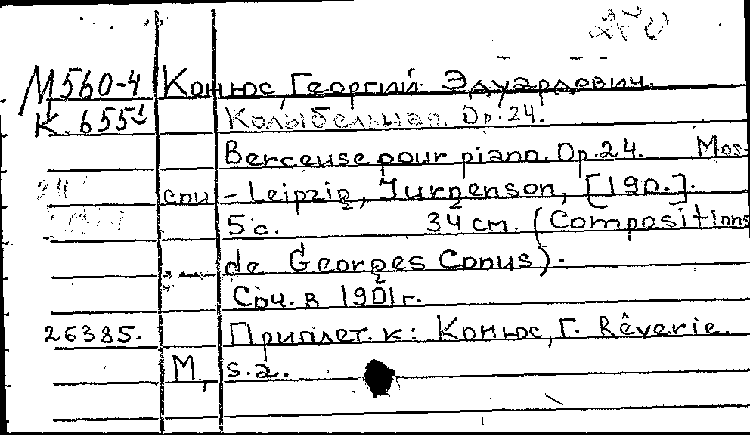 М560-4 Конюс, Георгий Эдуардович.
К 655 Колыбельная. Op.24.
Berceuse pour piano. Op.24. Mos-
cou - Leipzig, Jurgenson, [190.].
5 с. 34 см. (Compositions
de Georges Conus).
Соч. в 1901 г.
26385. Приплет. к: Конюс, Г. Rêverie.
М, s.a.